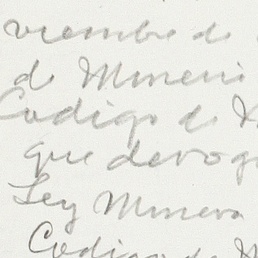 viembre de
de Mineri
Codigo de
que derog
Ley Minera
Codigo de M